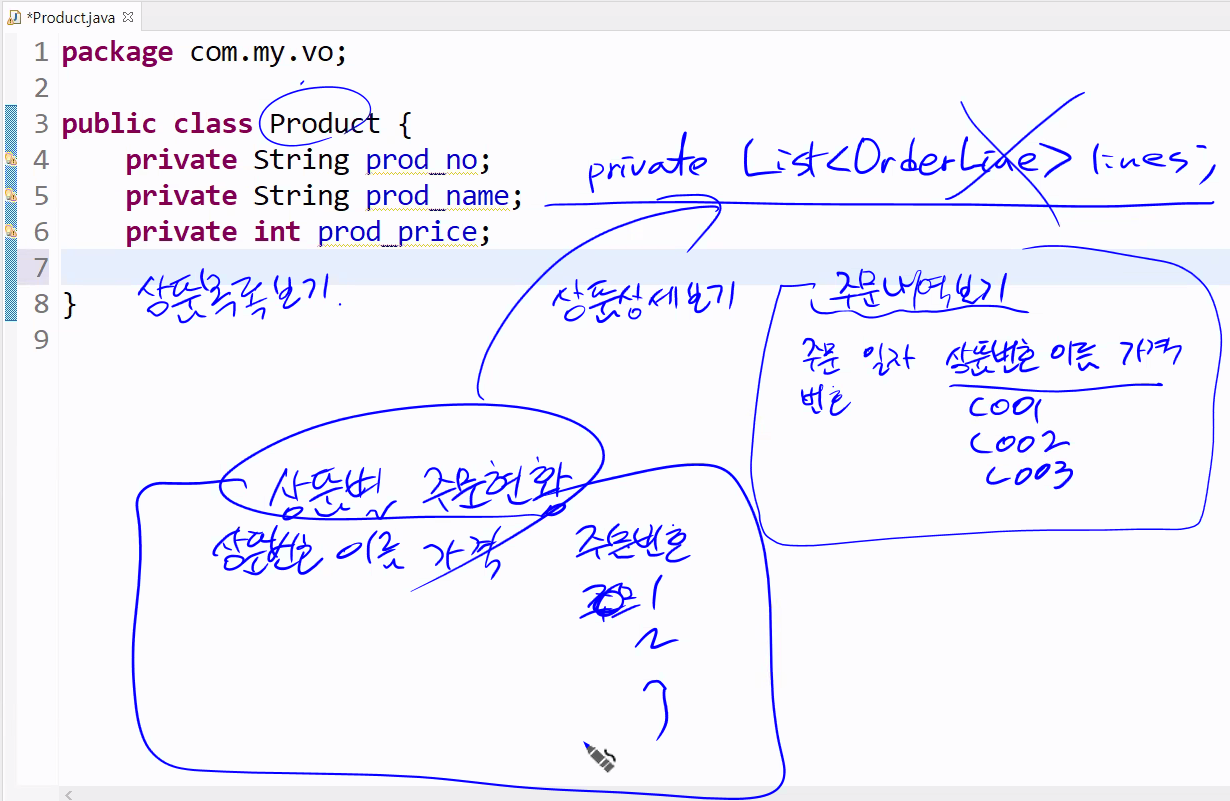 *Product.java
1 package com.my.vo;
2
3 public class Product {
4 private String prod_no;
5 private String prod_name;
6 private int prod_price;
7
8 }
9
private List<OrderLine> lines;
상품목록보기.
상품상세보기
주문내역보기
주문 일자 상품번호 이름 가격
번호
C001
C002
C003
상품별 주문현황
상품번호 이름 가격 주문번호
1
2
3